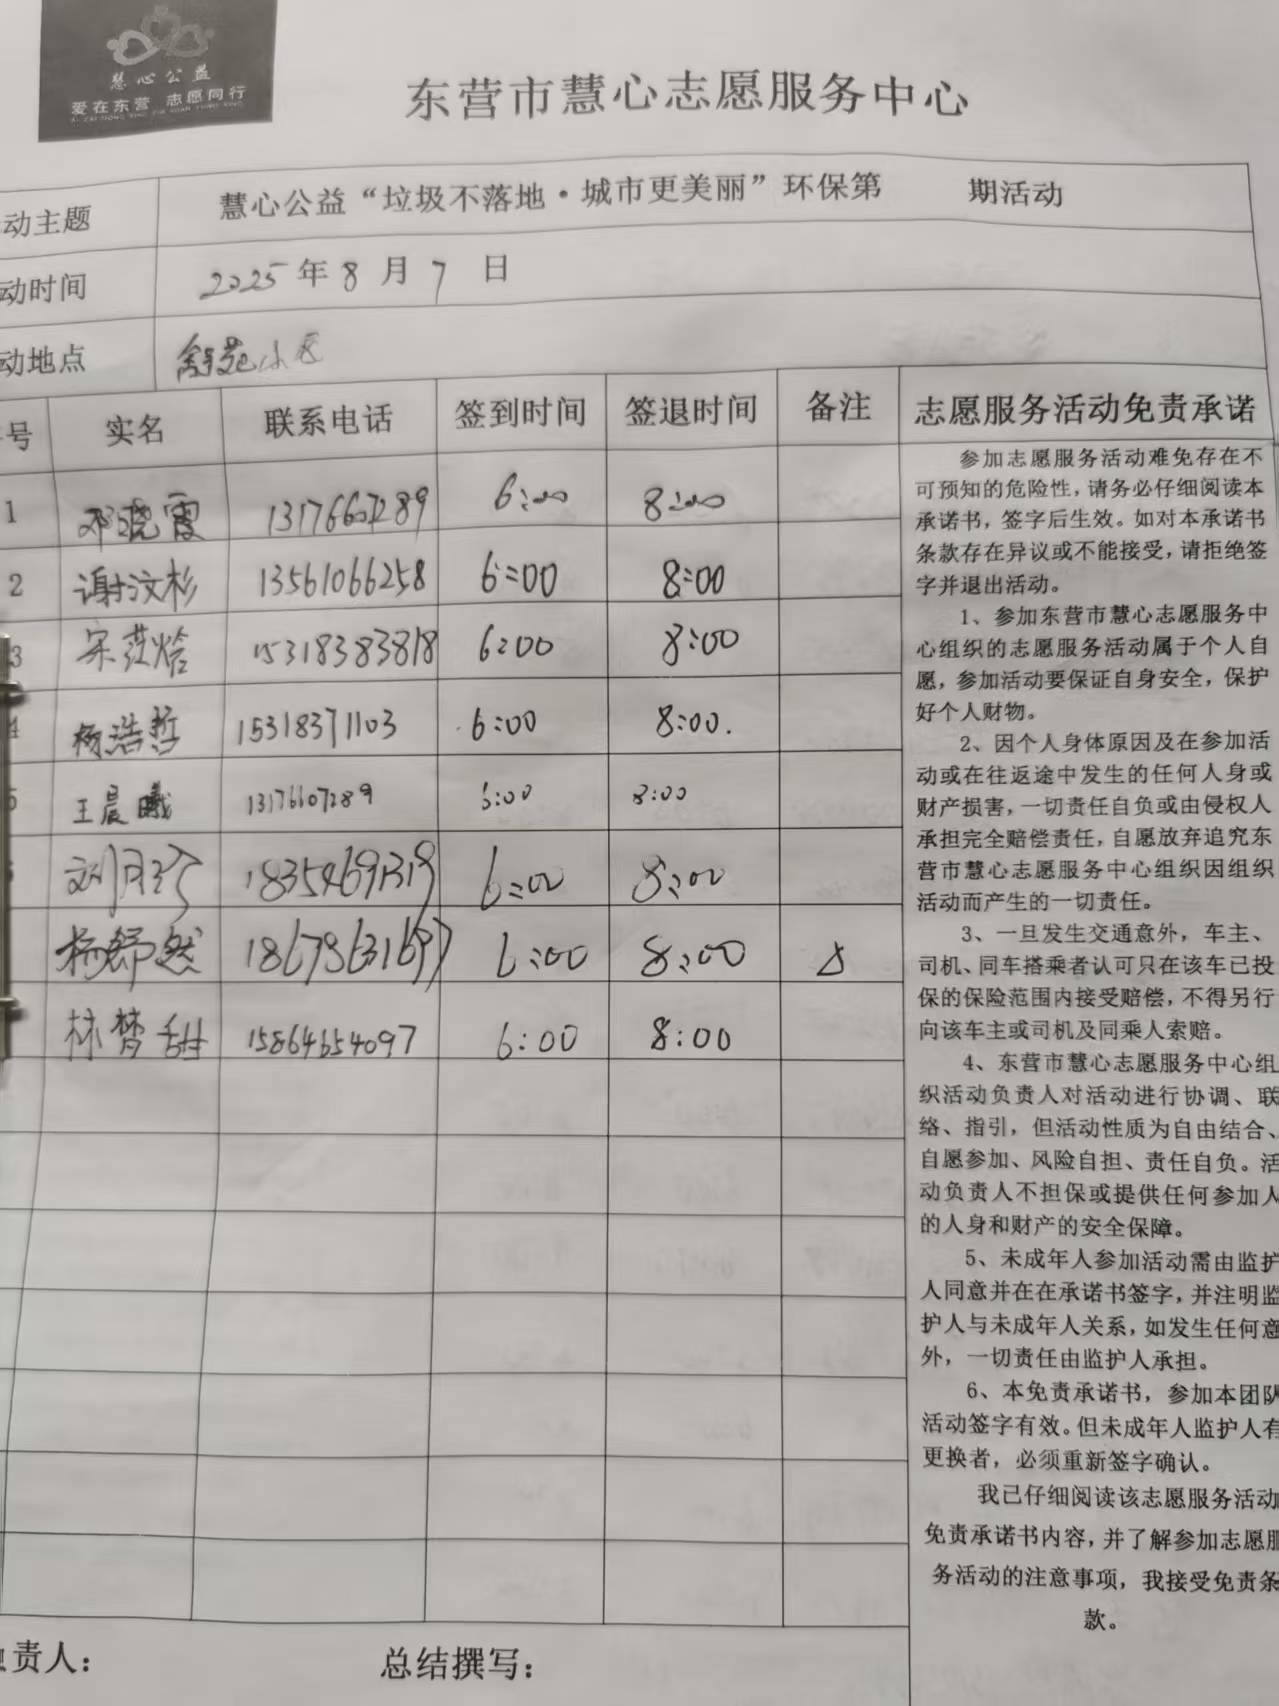 慧心公益
爱在东营 志愿同行
东营市慧心志愿服务中心
动主题 慧心公益“垃圾不落地·城市更美丽”环保第 期活动
动时间 2025年8月7日
动地点 小区
号 实名 联系电话 签到时间 签退时间 备注 志愿服务活动免责承诺
1 邓晓霞 13176607289 6:00 8:00
2 谢汶杉 13561066258 6:00 8:00
3 宋 15318383818 6:00 8:00
4 杨浩哲 15318371103 6:00 8:00.
5 王晨曦 13176607289 6:00 8:00
刘 18354691319 6:00 8:00
杨舒然 18678631697 6:00 8:00
林梦甜 15864654097 6:00 8:00
参加志愿服务活动难免存在不
可预知的危险性，请务必仔细阅读本
承诺书，签字后生效。如对本承诺书
条款存在异议或不能接受，请拒绝签
字并退出活动。
1、参加东营市慧心志愿服务中
心组织的志愿服务活动属于个人自
愿，参加活动要保证自身安全，保护
好个人财物。
2、因个人身体原因及在参加活
动或在往返途中发生的任何人身或
财产损害，一切责任自负或由侵权人
承担完全赔偿责任，自愿放弃追究东
营市慧心志愿服务中心组织因组织
活动而产生的一切责任。
3、一旦发生交通意外，车主、
司机、同车搭乘者认可只在该车已投
保的保险范围内接受赔偿，不得另行
向该车主或司机及同乘人索赔。
4、东营市慧心志愿服务中心组
织活动负责人对活动进行协调、联
络、指引，但活动性质为自由结合、
自愿参加、风险自担、责任自负。活
动负责人不担保或提供任何参加人
的人身和财产的安全保障。
5、未成年人参加活动需由监护
人同意并在在承诺书签字，并注明监
护人与未成年人关系，如发生任何意
外，一切责任由监护人承担。
6、本免责承诺书，参加本团队
活动签字有效。但未成年人监护人有
更换者，必须重新签字确认。
我已仔细阅读该志愿服务活动
免责承诺书内容，并了解参加志愿服
务活动的注意事项，我接受免责条
款。
责人： 总结撰写：